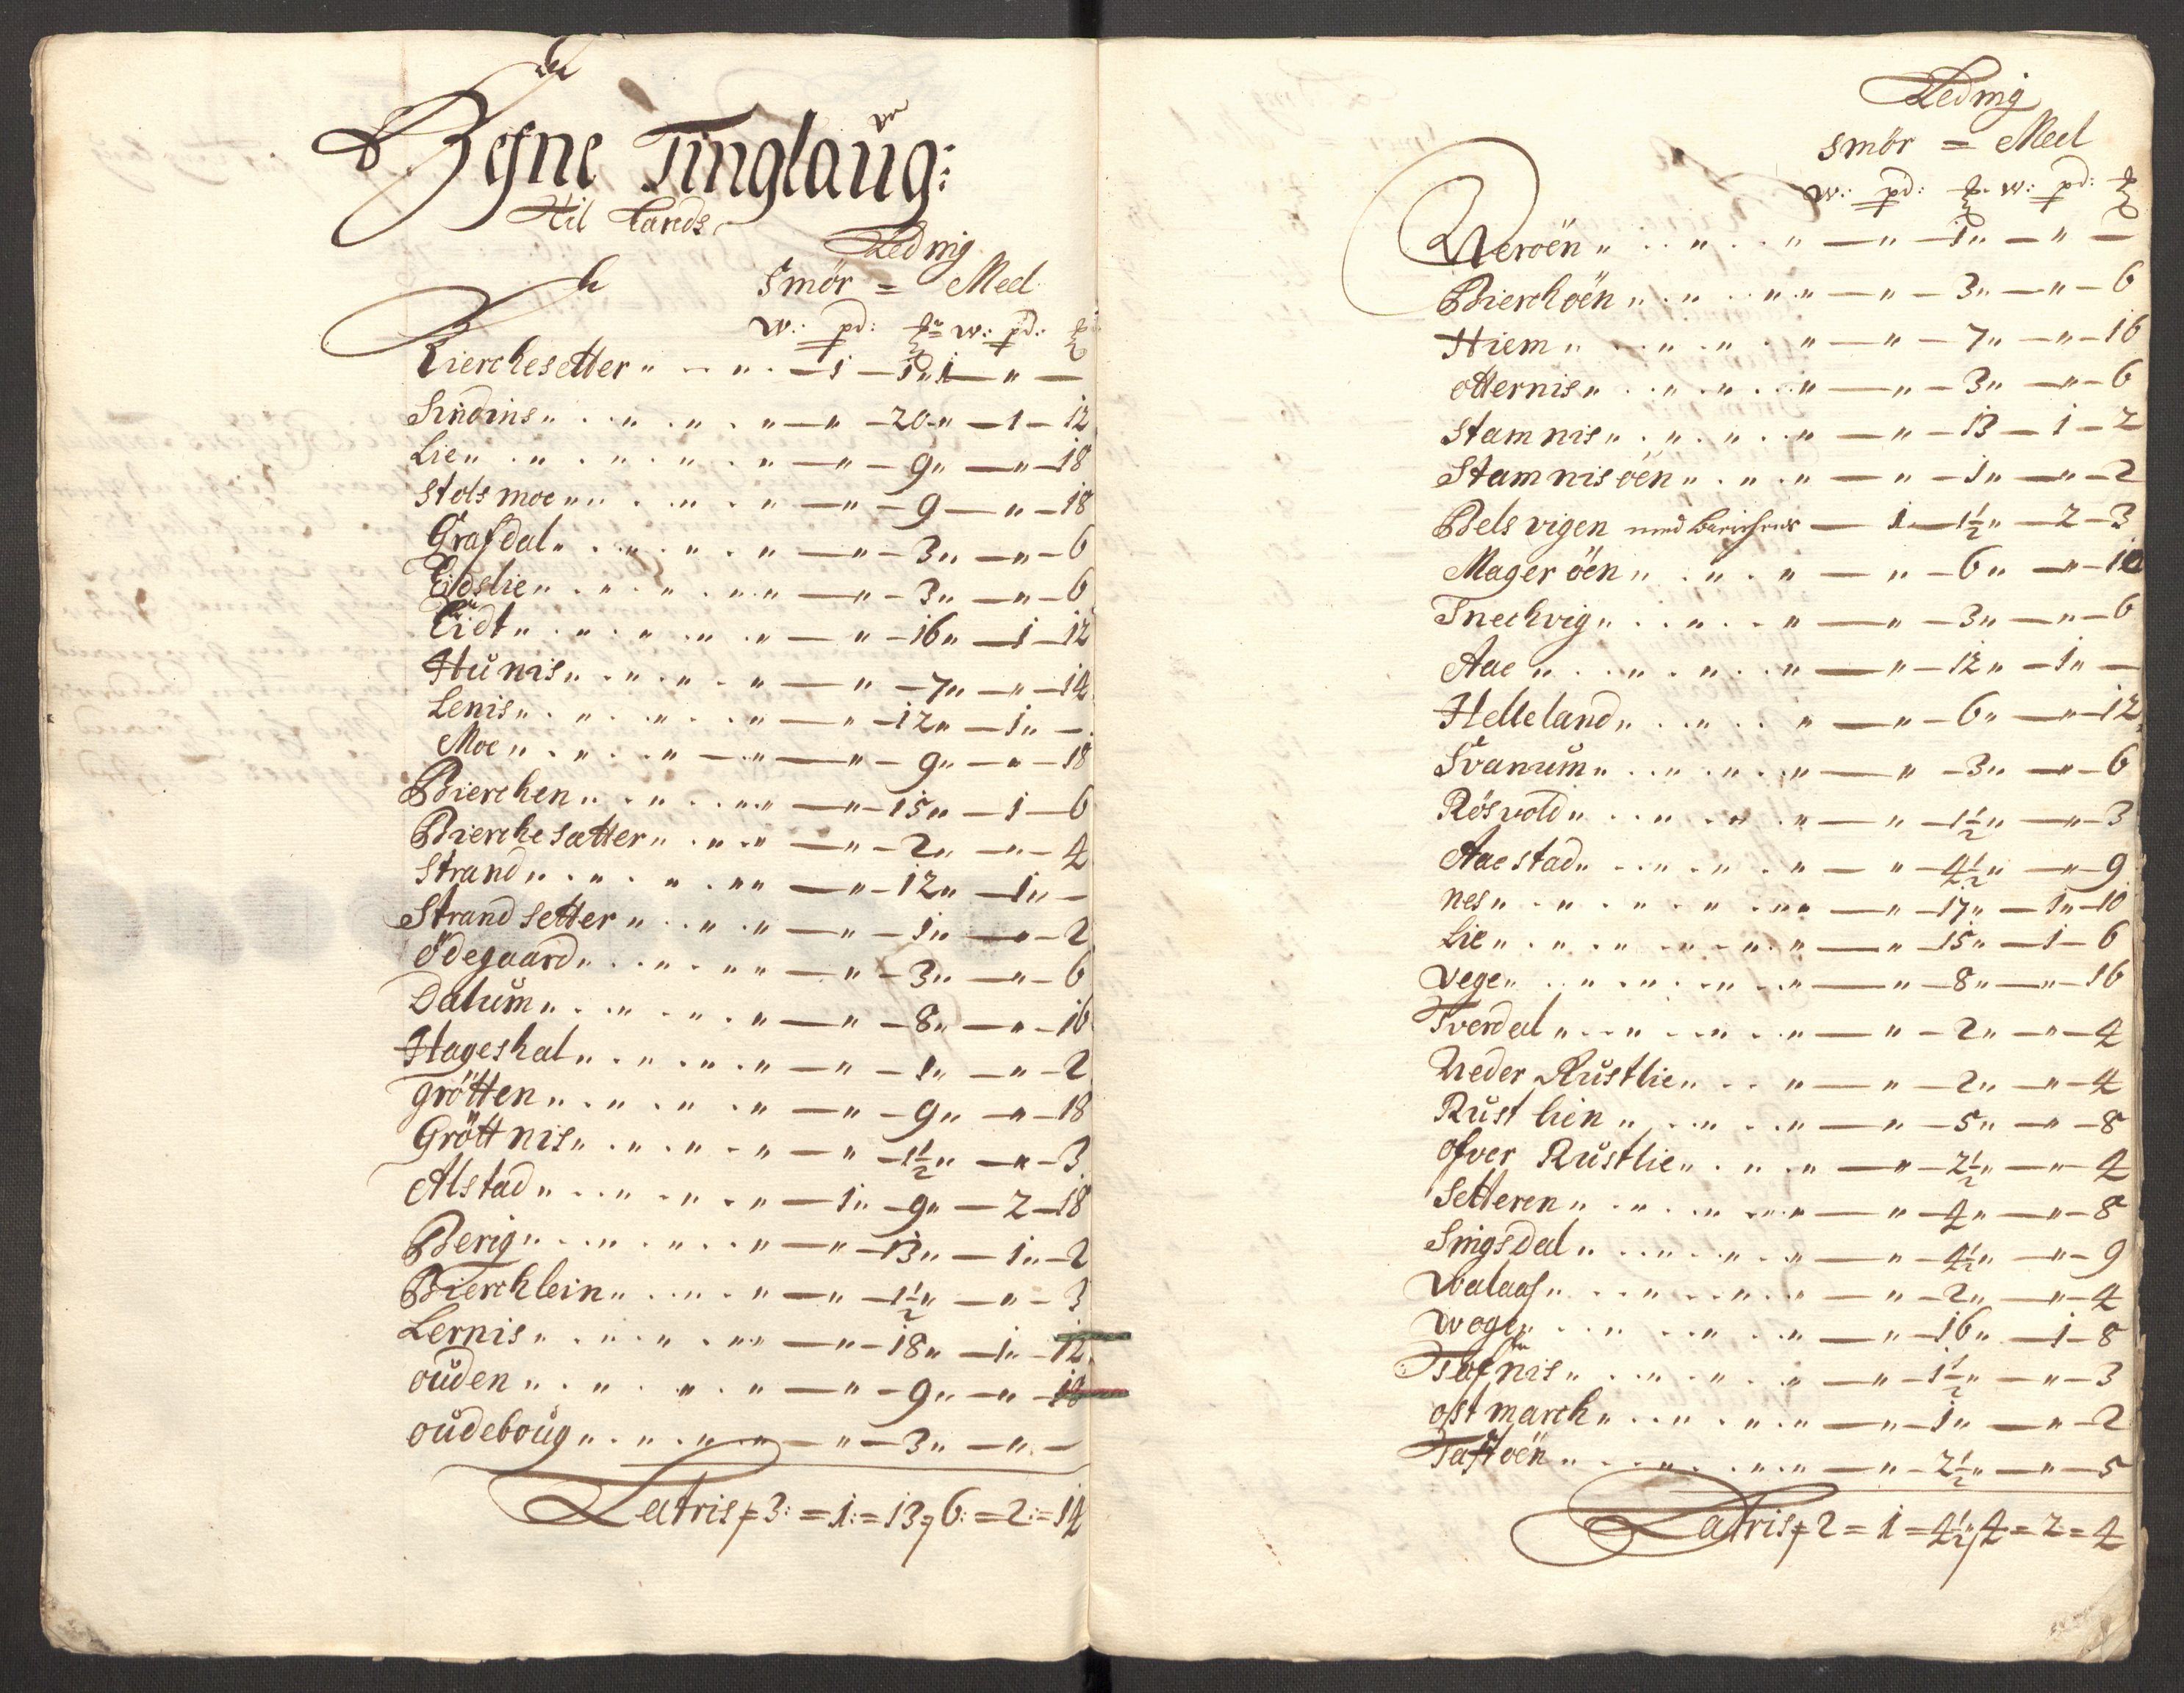 Befne Tinglaug:
Til Lands
Leding
Smör = Meel
w: pd: w: pd:
Bierchesetter " - " - 1 - 1 " 1 - " -
Sindins " " " " - " - 20 " - 1 - 12
Lie " " " " " - " - 9 " - " - 18
Stolsmoe " " " " - " - 9 - " - 18
Grafdal " " " " - " - 3 " - " - 6
Eidslie " " " " - " - 3 " - " - 6
Eidt " " " " " - " - 16 " - 1 - 12
Hunis " " " " - " - 7 " - " - 14
Lenis " " " " - " - 12 " - 1 " -
Moe " " " " - " - 9 " - " - 18
Bierchen " " " " - " - 15 " - 1 - 6
Bierchesætter " " " - " - 2 " - " - 4
Strand " " " " - " - 12 " - 1 " -
Strand setter " " " - " - 1 " - " - 2
Ödegaard " " " " - " - 3 " - " - 6
Dalum " " " " - " - 8 " - " - 16
Hageshal " " " " - " - 1 " - " - 2
Grötten " " " " - " - 9 " - " - 18
Gröttnis " " " " - " - 1½ " - " - 3
Alstad " " " " - 1 " - 9 " - 2 - 18
Berig " " " " - " - 13 " - 1 " - 2
Bierchlein " " " - " - 1½ " - " - 3
Lernis " " " " - " - 18 " - 1 " - 12
ouden " " " " - " - 9 " - " - 18
oudeboug " " " " - " - 3 " - " -
Latris 3: = 1: = 13, 6: = 2: = 14
Leding
Smör = Meel
w: pd: w: pd:
Weroën " " " - " - 1 " - " -
Bierchöen " " " " - " - 3 " - " - 6
Hiem " " " " - " - 7 " - " - 16
otternis " " " " - " - 3 " - " - 6
Stamnis " " " " - " - 13 - 1 - 2
Stamnisöen " " " - " - 1 " - " - 2
Belsvigen med - 1 - 1½ " - 2 - 3
Mageröen " " " - " - 6 " - " - 10
Snechvig " " " - " - 3 " - " - 6
Aae " " " " - " - 12 " - 1 " -
Helleland " " " - " - 6 " - " - 12
Svanum " " " " - " - 3 " - " - 6
Rösvold " " " " - " - 1½ " - " - 3
Aaestad " " " " - " - 4½ " - " - 9
nes " " " " " - " - 17 " - 1 " - 10
Lie " " " " " - " - 15 " - 1 - 6
Vege " " " " - " - 8 " - " - 16
Tverdal " " " " - " - 2 " - " - 4
Neder Rustlie " " - " - 2 " - " - 4
Rustlien " " " - " - 5 " - " - 8
ofver Rustlie " " " - " - 2½ " - " - 4
Setteren " " " " - " - 4 " - " - 8
Singsdal " " " " - " - 4½ " - " - 9
Walaas " " " " - " - 2 " - " - 4
Woge " " " " - " - 16 " - 1 - 8
Tofnis " " " " - " - 1½ " - " - 3
ostmarch " " " " - " - 1 " - " - 2
Taftöen " " " " - " - 2½ " - " - 5
Latris 2 = 1 = 4½, 4 = 2 = 4